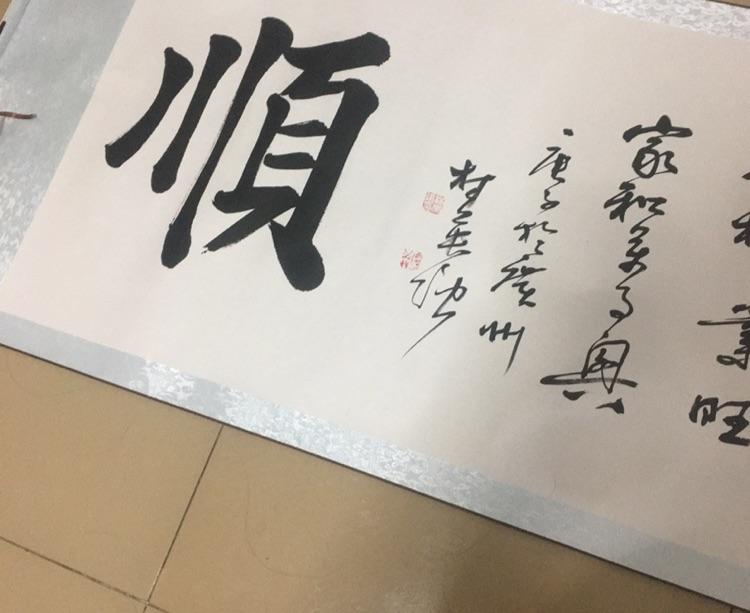 業旺
家和萬事興
庚子於廣州
順